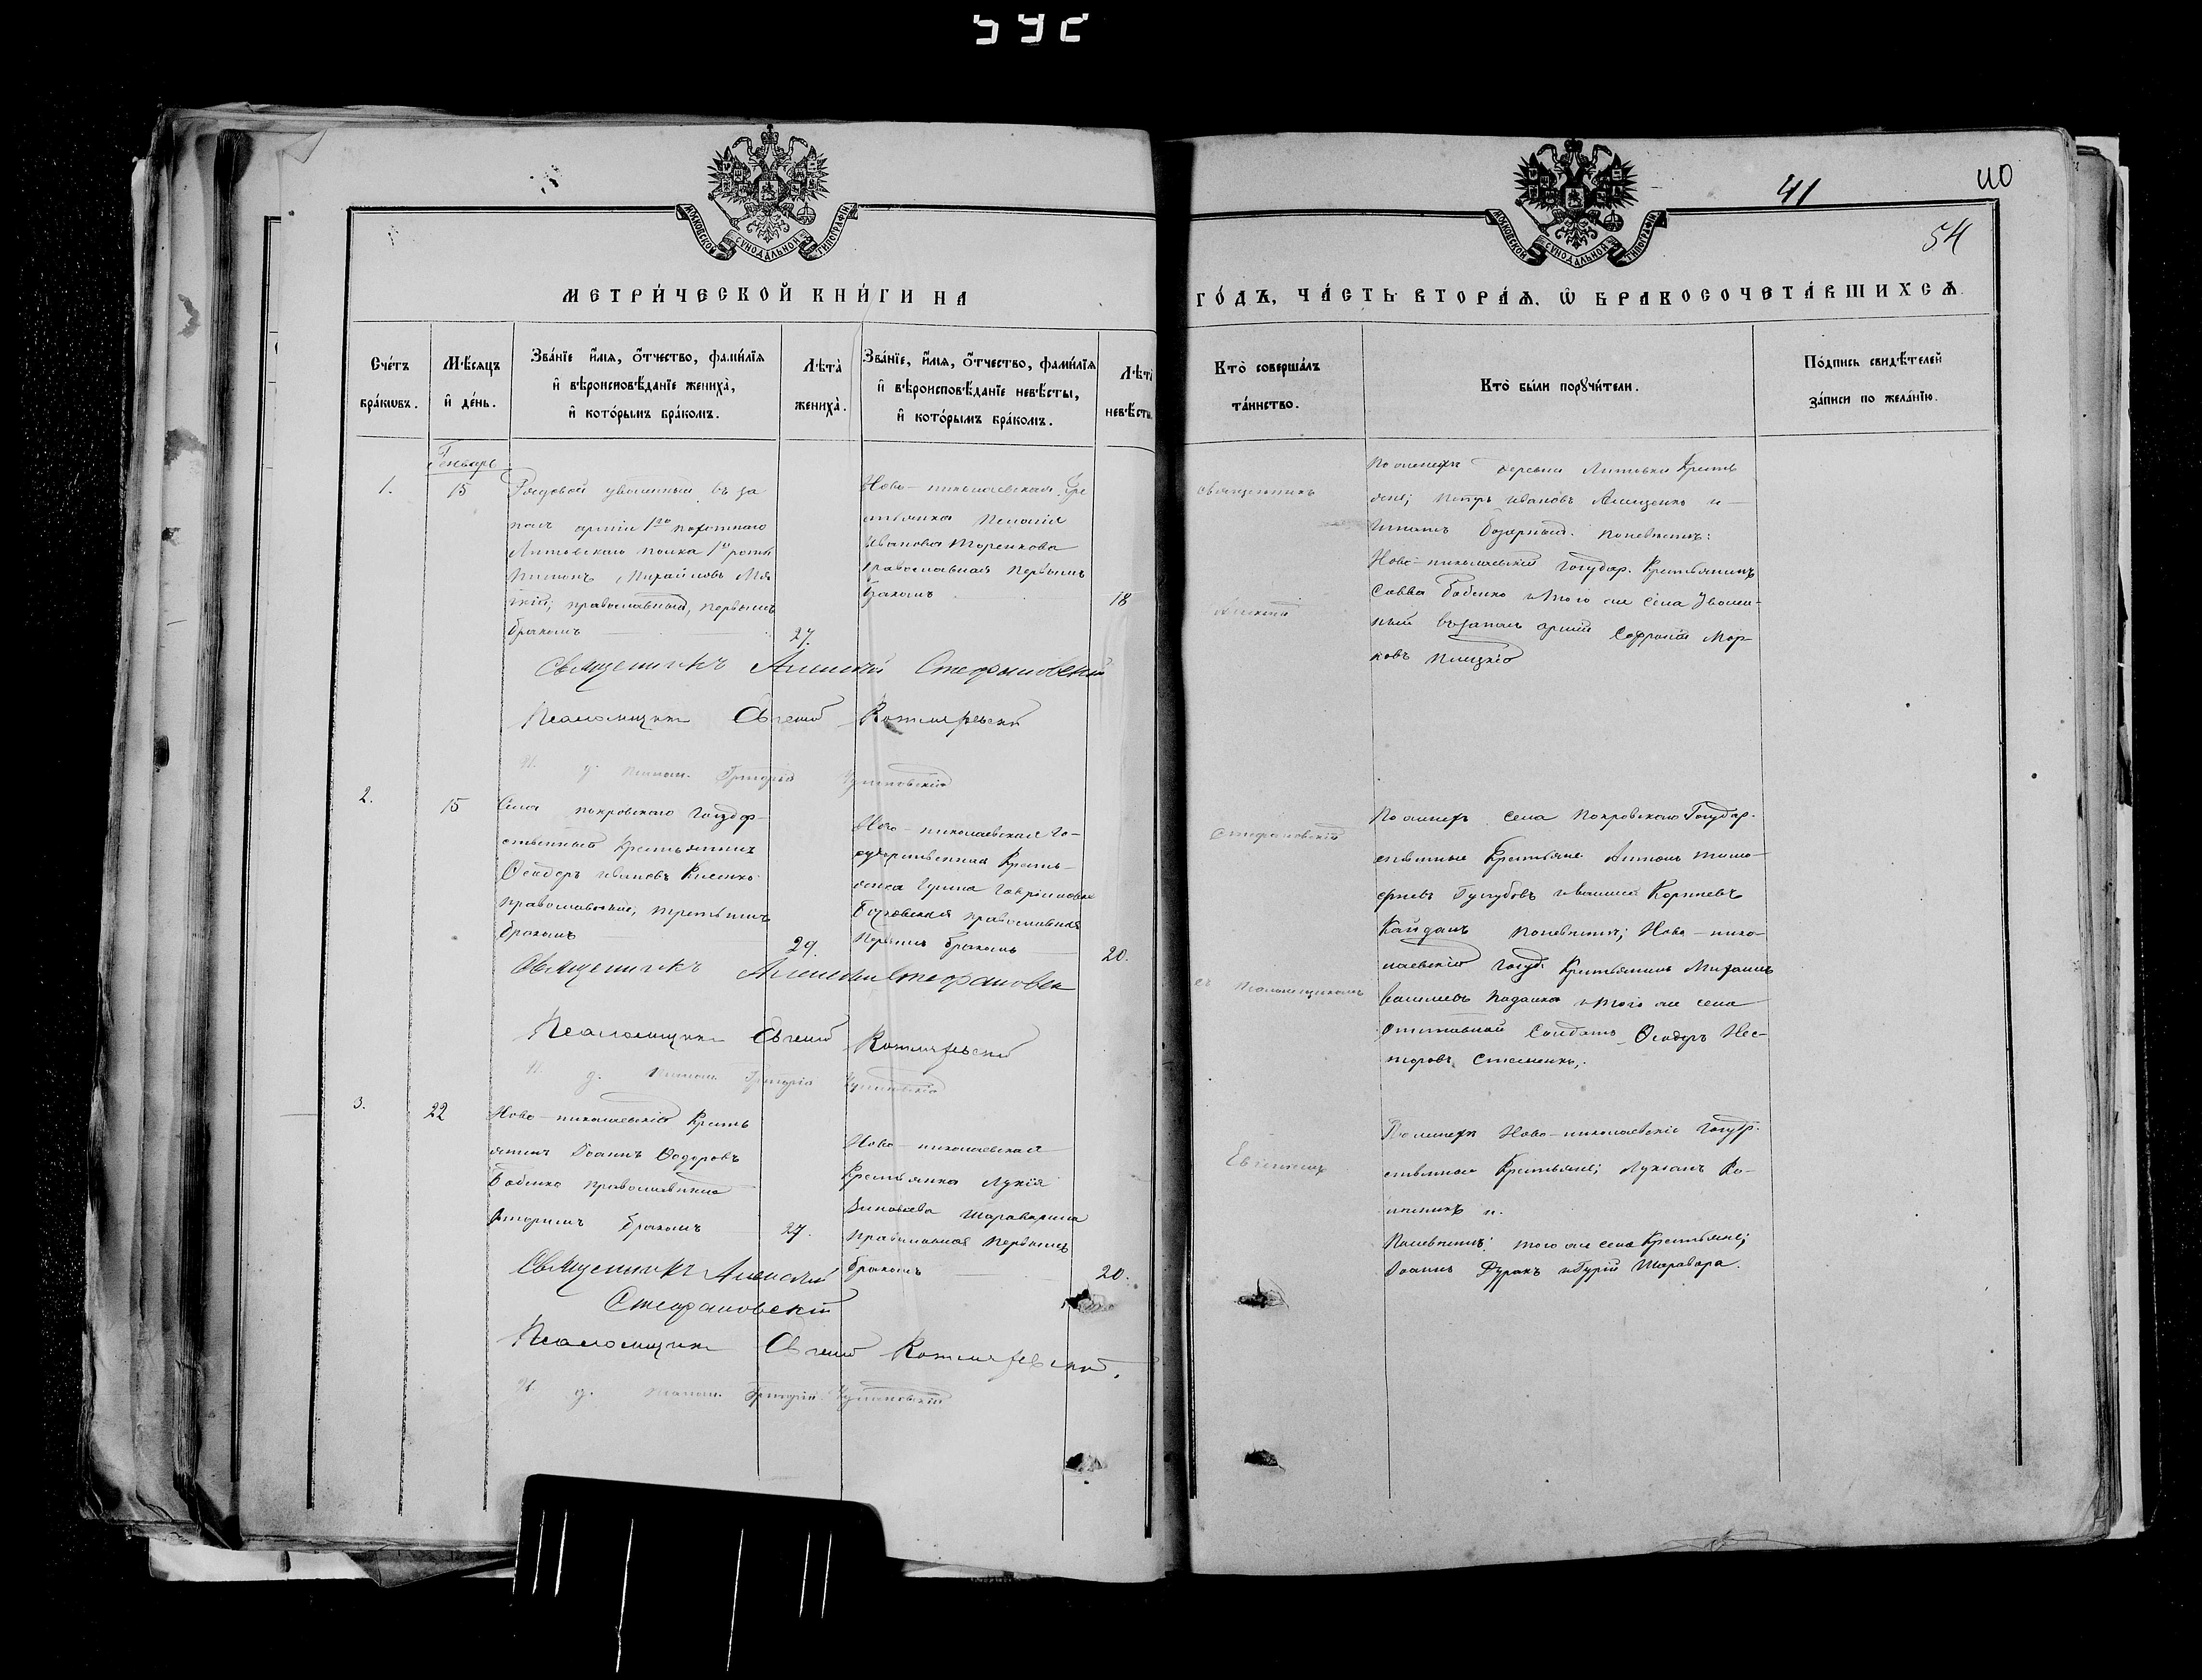 592
МОСКОВСКОЙ СѴНОДАЛЬНОЙ ТИПОГРАФІИ
МОСКОВСКОЙ СѴНОДАЛЬНОЙ ТИПОГРАФІИ
41
110
54
МЕТРИ́ЧЕСКОЙ КНИ́ГИ НА
ГО́ДЪ, ЧА́СТЬ ВТОРА́Ѧ, Ѽ БРАКОСОЧЕТА́ВШИХСѦ
Сче́тъ
бра́кѡвъ.
Мѣ́сяцъ
и҆ де́нь.
Зва́нїе, и҆́мѧ, ѻ҆́тчество, фами́лїѧ
и҆ вѣроисповѣ́данїе жениха̀,
и҆ кото́рымъ бра́комъ.
Лѣта̀
жениха̀.
Зва́нїе, и҆́мѧ, ѻ҆́тчество, фами́лїѧ
и҆ вѣроисповѣ́данїе невѣ́сты,
и҆ кото́рымъ бра́комъ.
Лѣта̀
невѣ́сты.
Кто̀ соверша́лъ
та́инство.
Кто̀ бы́ли порꙋчи́тели.
По́дпись свидѣ́телей
за́писи по жела́нїю.
Генварь
1.
15
Рядовой уволенный въ за
пасъ арміи 1го пехотнаго
Литовскаго полка 1й роты
Михайловъ
православный, первымъ
бракомъ
27.
Ново-николаевская Кре
стьянка Пелагія
Иванова Торенкова
православная первымъ
бракомъ
18
Священникъ
Алексій
По женихе деревни Литовки Кресть
яне; Петръ Ивановъ и
Игнатъ по невѣсте:
Ново-николаевскій Государ. Крестьянинъ
Савва Бабенко и того же села Уволен-
ный въ запасъ арміи Софроній Мар-
ковъ
Священникъ Алексій Стефановскій
Псаломщикъ Евгеній Котляревскій
И. д. Псалом. Григорій
2.
15
Села Покровскаго Государ-
ственный Крестьянинъ
Ѳеодоръ Ивановъ
православный, третьимъ
бракомъ
29.
Ново-николаевская Го-
сударственная Кресть-
янка Ирина
православная
первымъ бракомъ
20.
Стефановскій
съ Псаломщикомъ
По женихе села Покровскаго Государ-
ственные Крестьяне Антонъ Тимо-
феевъ и Василій Корнѣевъ
Кайданъ по невѣсте; Ново-нико-
лаевскій Госуд. Крестьянинъ Михаилъ
Васильевъ и того же села
Отставной Солдатъ Ѳеодоръ Нес-
теровъ
Священникъ Алексій Стефановск
Псаломщикъ Евгеній Котляревскій
И. д. Псалом. Григорій
3.
22
Ново-николаевскій Кресть
янинъ Іоаннъ Ѳедоровъ
Бабенко православный
вторымъ бракомъ
27.
Ново-николаевская
Крестьянка Лукія
Зиновьева
православная первымъ
бракомъ
20.
Евгеніемъ
По женихе Ново-николаевскіе Государ-
ственные Крестьяне; Лукіанъ
и.
По невѣсте: того же села Крестьяне;
Іоаннъ и Гурій Шаравара.
Священникъ Алексій
Стефановскій
Псаломщикъ Евгеній Котляревскій.
И. д. Псалом. Григорій